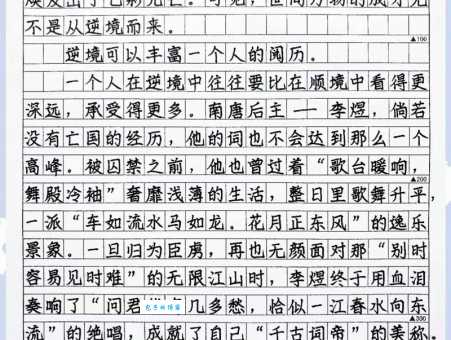 不是从逆境而来。
▲100
逆境可以丰富一个人的阅历。
一个人在逆境中往往要比在顺境中看得更
深远，承受得更多。南唐后主——李煜，倘若
没有亡国的经历，他的词也不会达到那么一个
高峰。被囚禁之前，他也曾过着“歌台暖响，
▲200
舞殿冷袖”奢靡浅薄的生活，整日里歌舞升平，
一派“车如流水马如龙。花月正东风”的逸乐
景象。一旦归为臣虏，再也无颜面对那“别时
容易见时难”的无限江山时，李煜终于用血泪
奏响了“问君 几多愁，恰似一江春水向东
▲300
流”的绝唱，成就了自己“千古词帝”的美称。